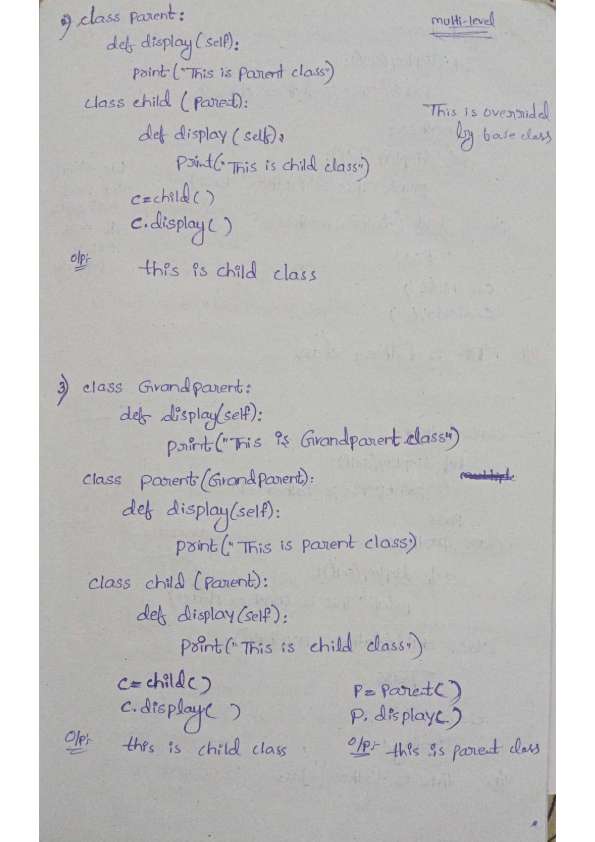 2) class parent:
multi-level
def display(self):
print("This is parent class")
class child (Parent):
This is overrided
by base class
def display(self):
Print("This is child class")
c=child()
c.display()
o/p:-
this is child class
3) class Grandparent:
def display(self):
print("This is Grandparent class")
class parent(Grandparent):
def display(self):
print("This is parent class")
class child (parent):
def display(self):
print("This is child class")
c=child()
P=Parent()
c.display()
P.display()
o/p:- this is child class
o/p:- this is parent class